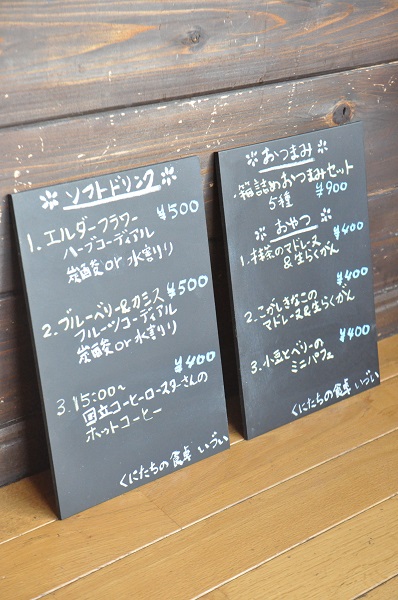 ソフトドリンク
1. エルダーフラワー ¥500
ハーブコーディアル
炭酸 or 水割り
2. ブルーベリー&カシス ¥500
フルーツコーディアル
炭酸 or 水割り
3. 15:00〜 ¥400
国立コーヒーロースターさんの
ホットコーヒー
くにたちの食卓 いづい
おつまみ
箱詰めおつまみセット
5種 ¥900
おやつ
1. 抹茶のマドレーヌ ¥400
&生らくがん
2. こがしきなこの ¥400
マドレーヌ&生らくがん
3. 小豆とベリーの ¥400
ミニパフェ
くにたちの食卓 いづい